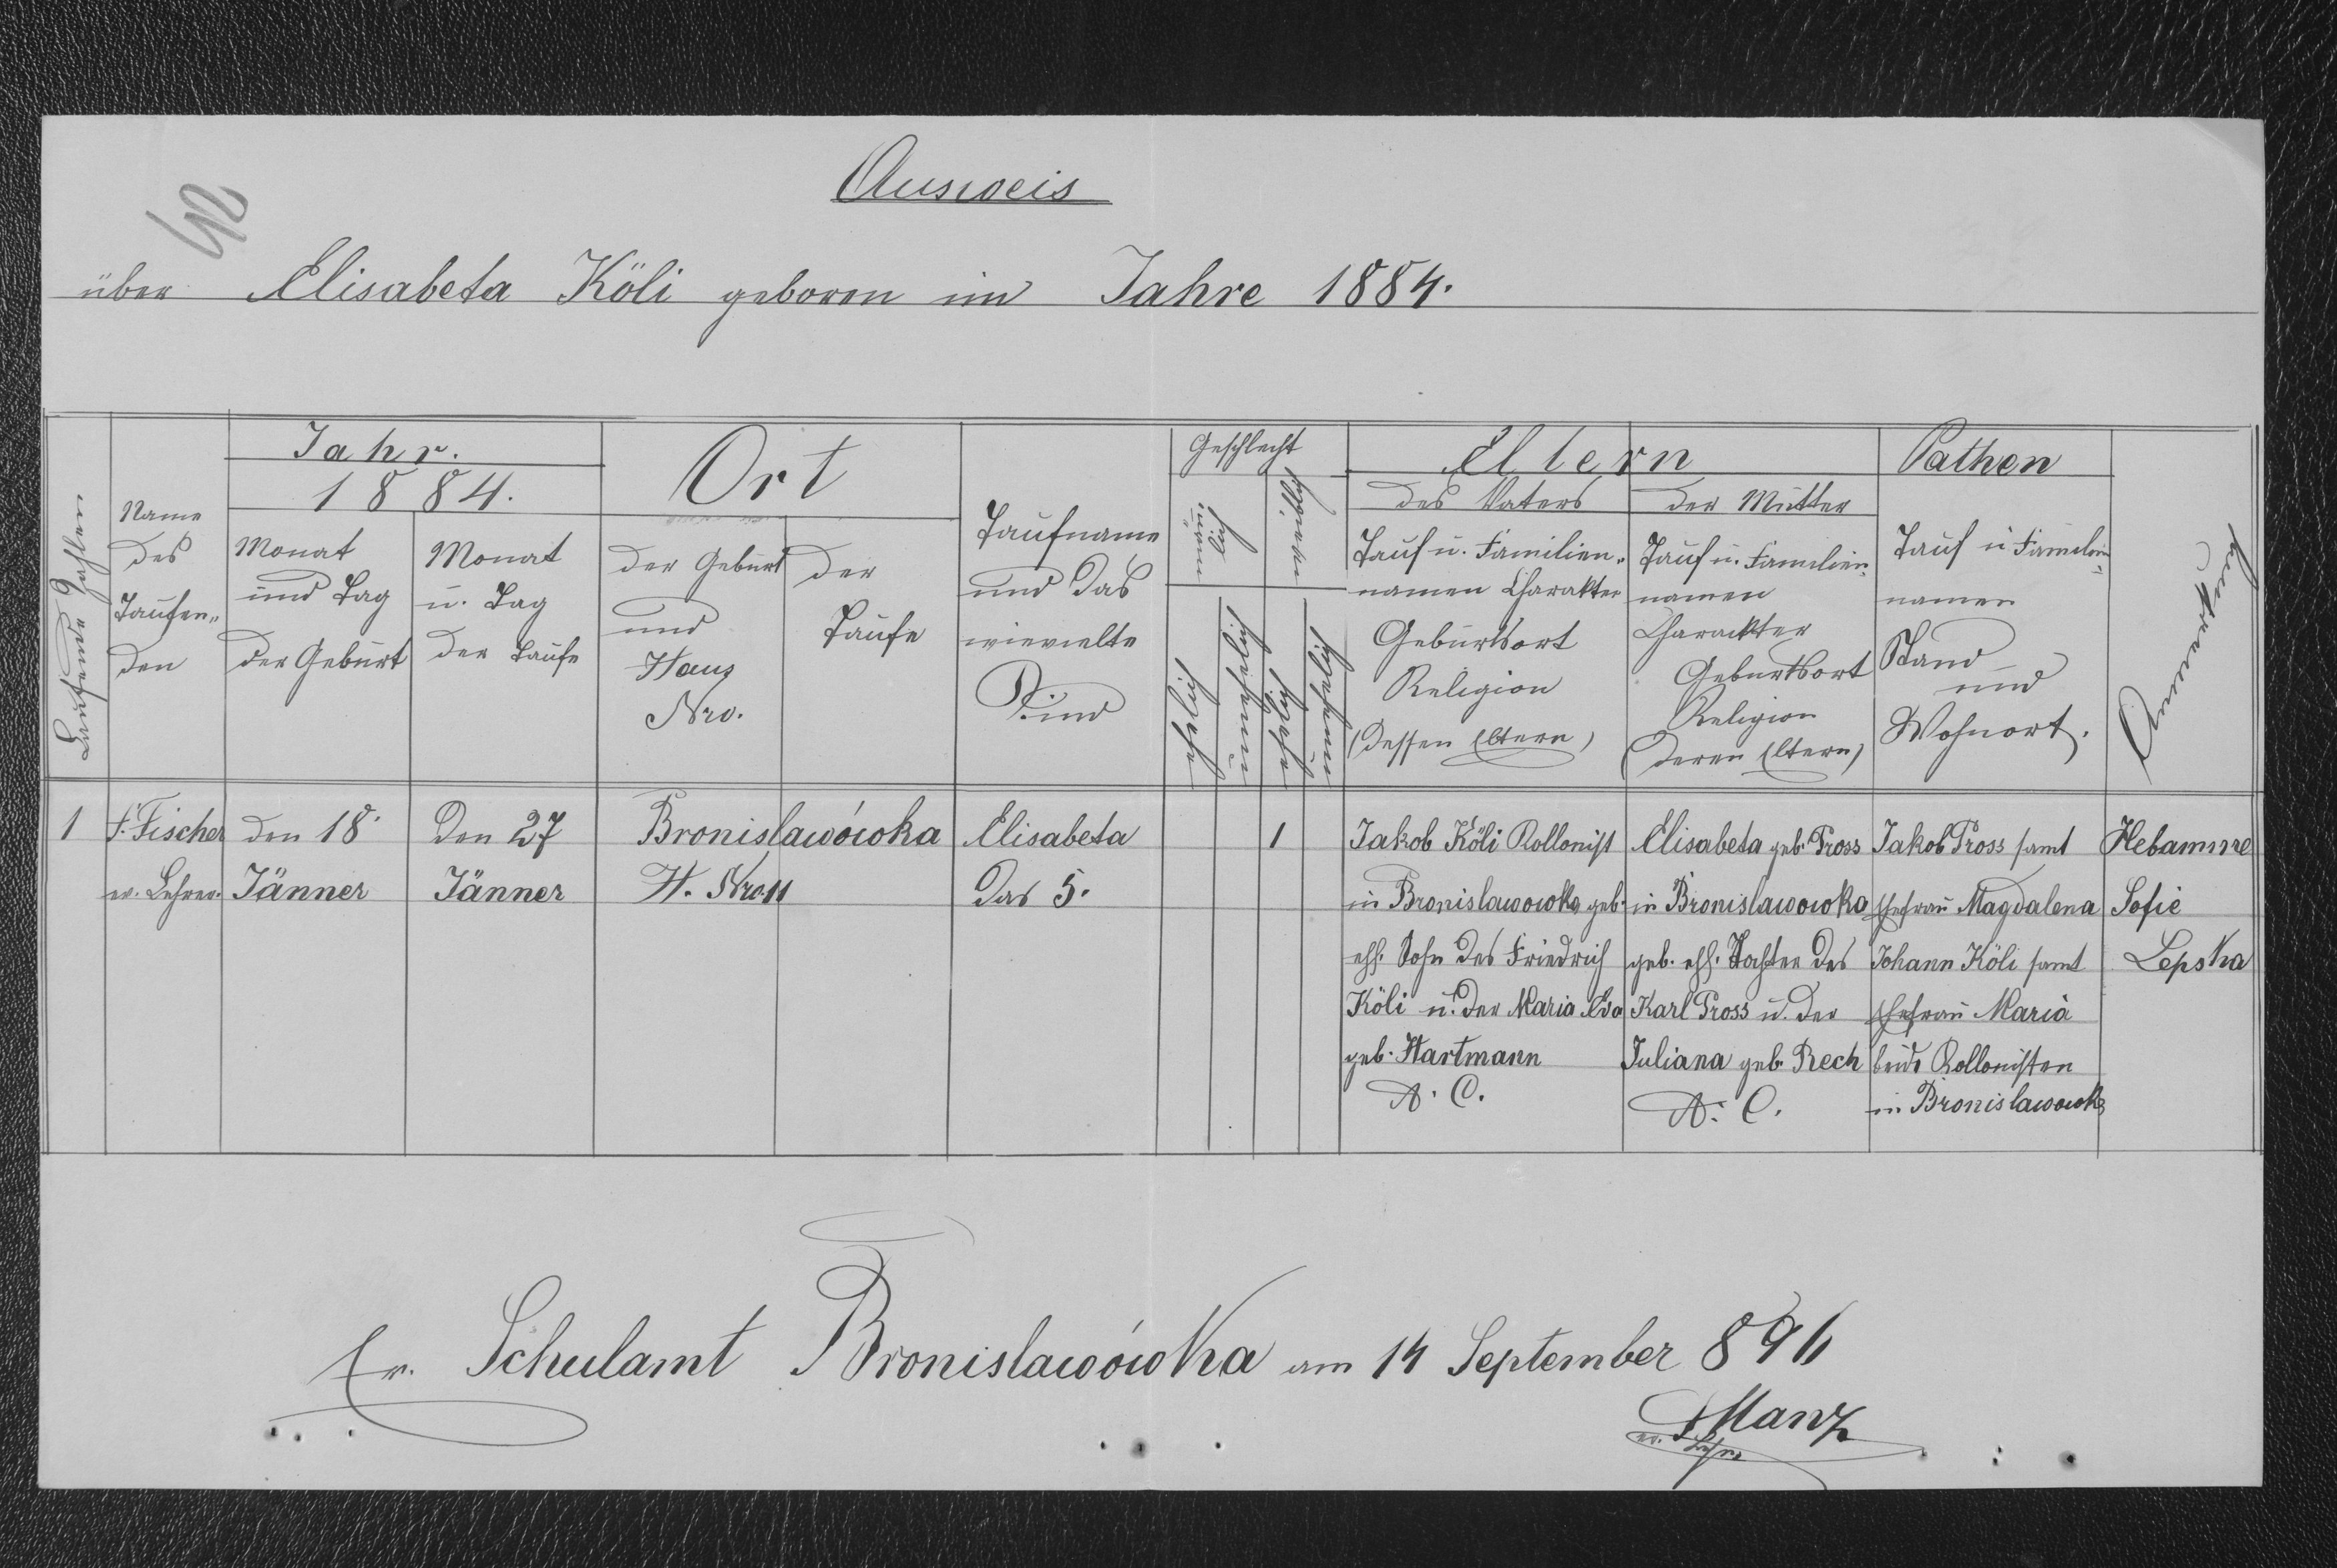 Ausweis
über Elisabeta Köli geboren im Jahre 1884.
Laufende Zahlen
Name
des
Taufen-
den
Jahr.
1884.
Monat
und Tag
der Geburt
Monat
u. Tag
der Taufe
Ort
der Geburt
und
Haus
Nro.
der
Taufe
Taufname
und das
wievielte
Kind
Geschlecht
männ
lich
weiblich
ehelich
unehelich
ehelich
unehelich
Eltern
des Vaters
Tauf u. Familien-
namen Charakter
Geburtsort
Religion
(dessen Eltern)
der Mutter
Tauf u. Familien-
namen
Charackter
Geburtsort
Religion
(deren Eltern)
Pathen
Tauf u Familien-
namen
Stand
und
Wohnort.
Anmerkung
1
F. Fischer
ev. Lehrer.
den 18
Jänner
den 27
Jänner
Bronislawówka
H. Nro 11
Elisabeta
das 5.
1
Jakob Köli Kollonist
in Bronislawowka geb.
ehl. Sohn des Friedrich
Köli u. der Maria Eva
geb. Hartmann
A. C.
Elisabeta geb. Pross
in Bronislawowka
geb. ehl. Tochter des
Karl Pross u. der
Juliana geb. Rech
A. C.
Jakob Pross samt
Ehefrau Magdalena
Johann Köli samt
Ehefrau Maria
beide Kollonisten
in Bronislawowka
Hebamme
Sofie
Lepska
Ev. Schulamt Bronislawówka am 14 September 896
Manz
ev. Lehrer